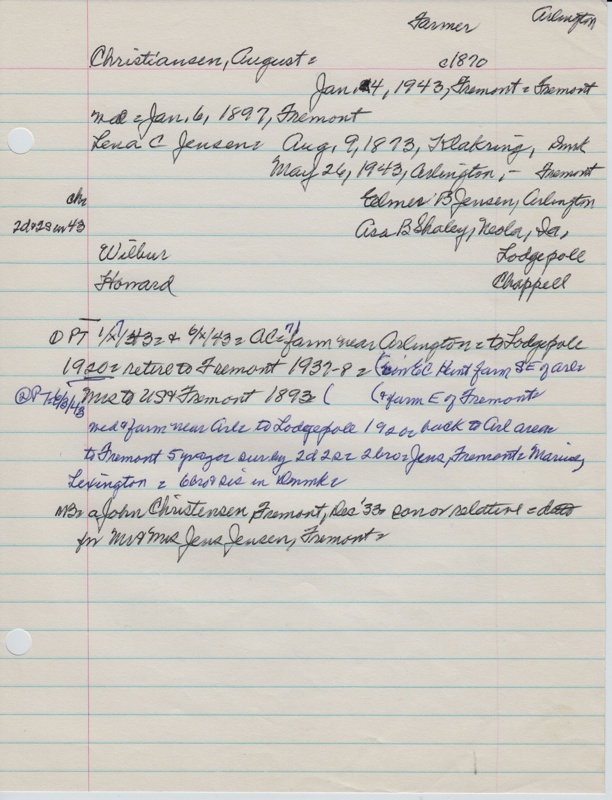 Farmer Arlington
Christiansen, August = c1870
Jan. 4, 1943, Fremont = Fremont
md = Jan. 6, 1897, Fremont
Lena C Jensen = Aug. 9, 1873, Klakring, Dmk
May 26, 1943, Arlington, - Fremont
ch= Elmer B Jensen, Arlington
2d+2s in 43 Asa B Shaley, Neola, Ia,
Wilbur Lodgepole
Howard Chappell
① PT 1/ /43 = + 6/ /43 = AC = farm near Arlington = to Lodgepole
1920 = retire to Fremont 1937-8 = ( EC Hunt farm SE of Arl=
② PT= Mrs to US + Fremont 1893 = ( (+ farm E of Fremont
md + farm near Arl= to Lodgepole 1920= back to Arl area=
to Fremont 5 yrs ago= sur by 2d 2s = 2 bro= Jens, Fremont = Marius,
Lexington = 6 bro + sis in Denmk=
NB = a John Christensen, Fremont, Dec '33= son or relative =
for Mr + Mrs Jens Jensen, Fremont=